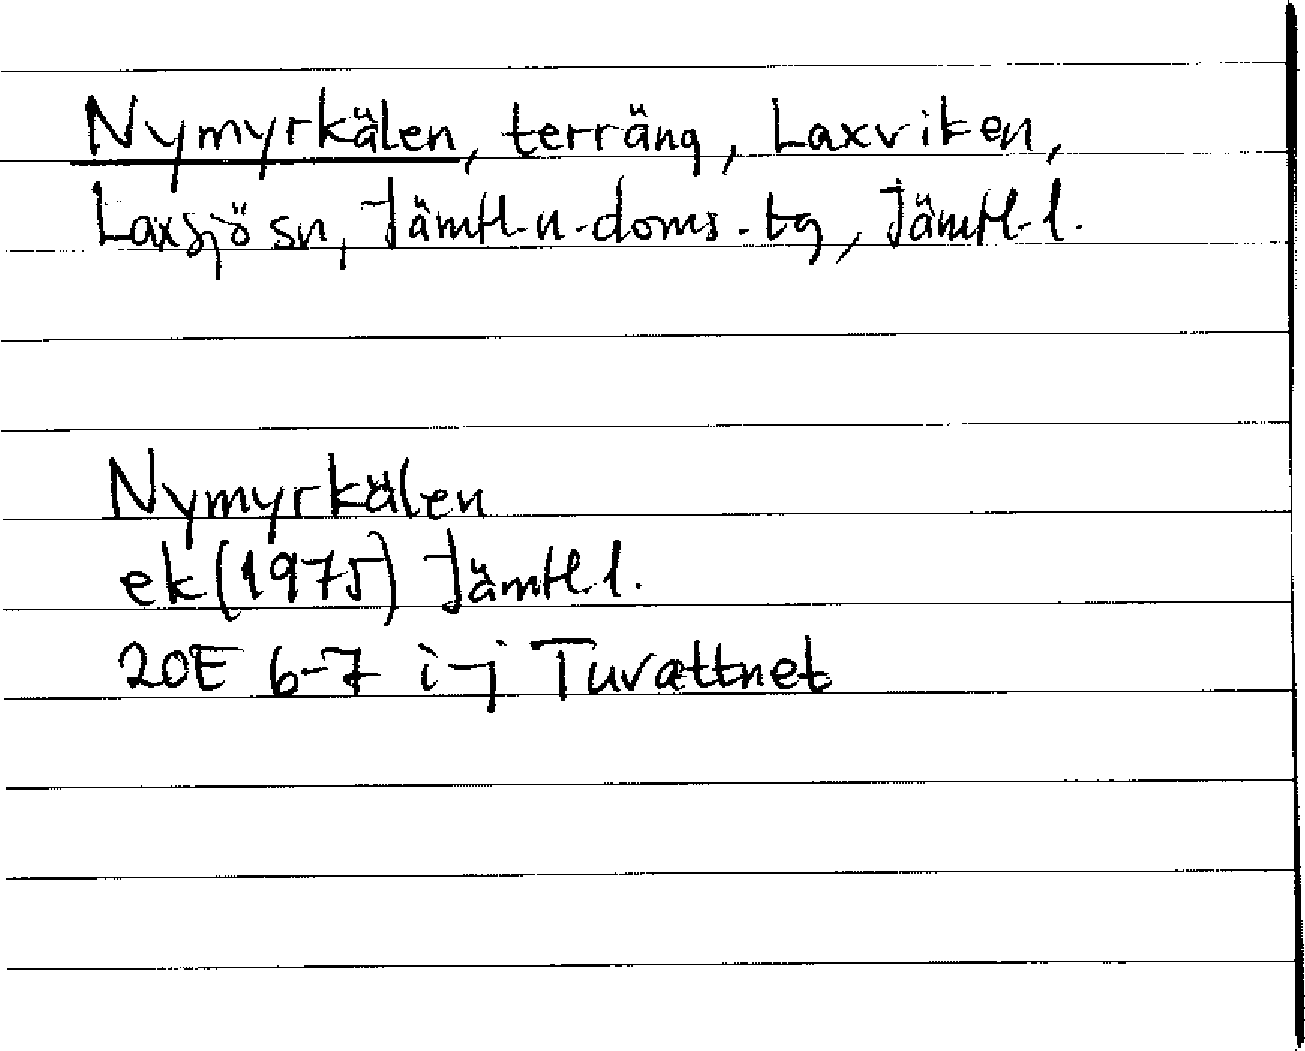 Nymyrkälen, terräng, Laxviken,
Laxsjö sn, Jämtl. n. doms. tg, Jämtl. l.
Nymyrkälen
ek (1975) Jämtl. l.
20E 6-7 i-j Tuvattnet